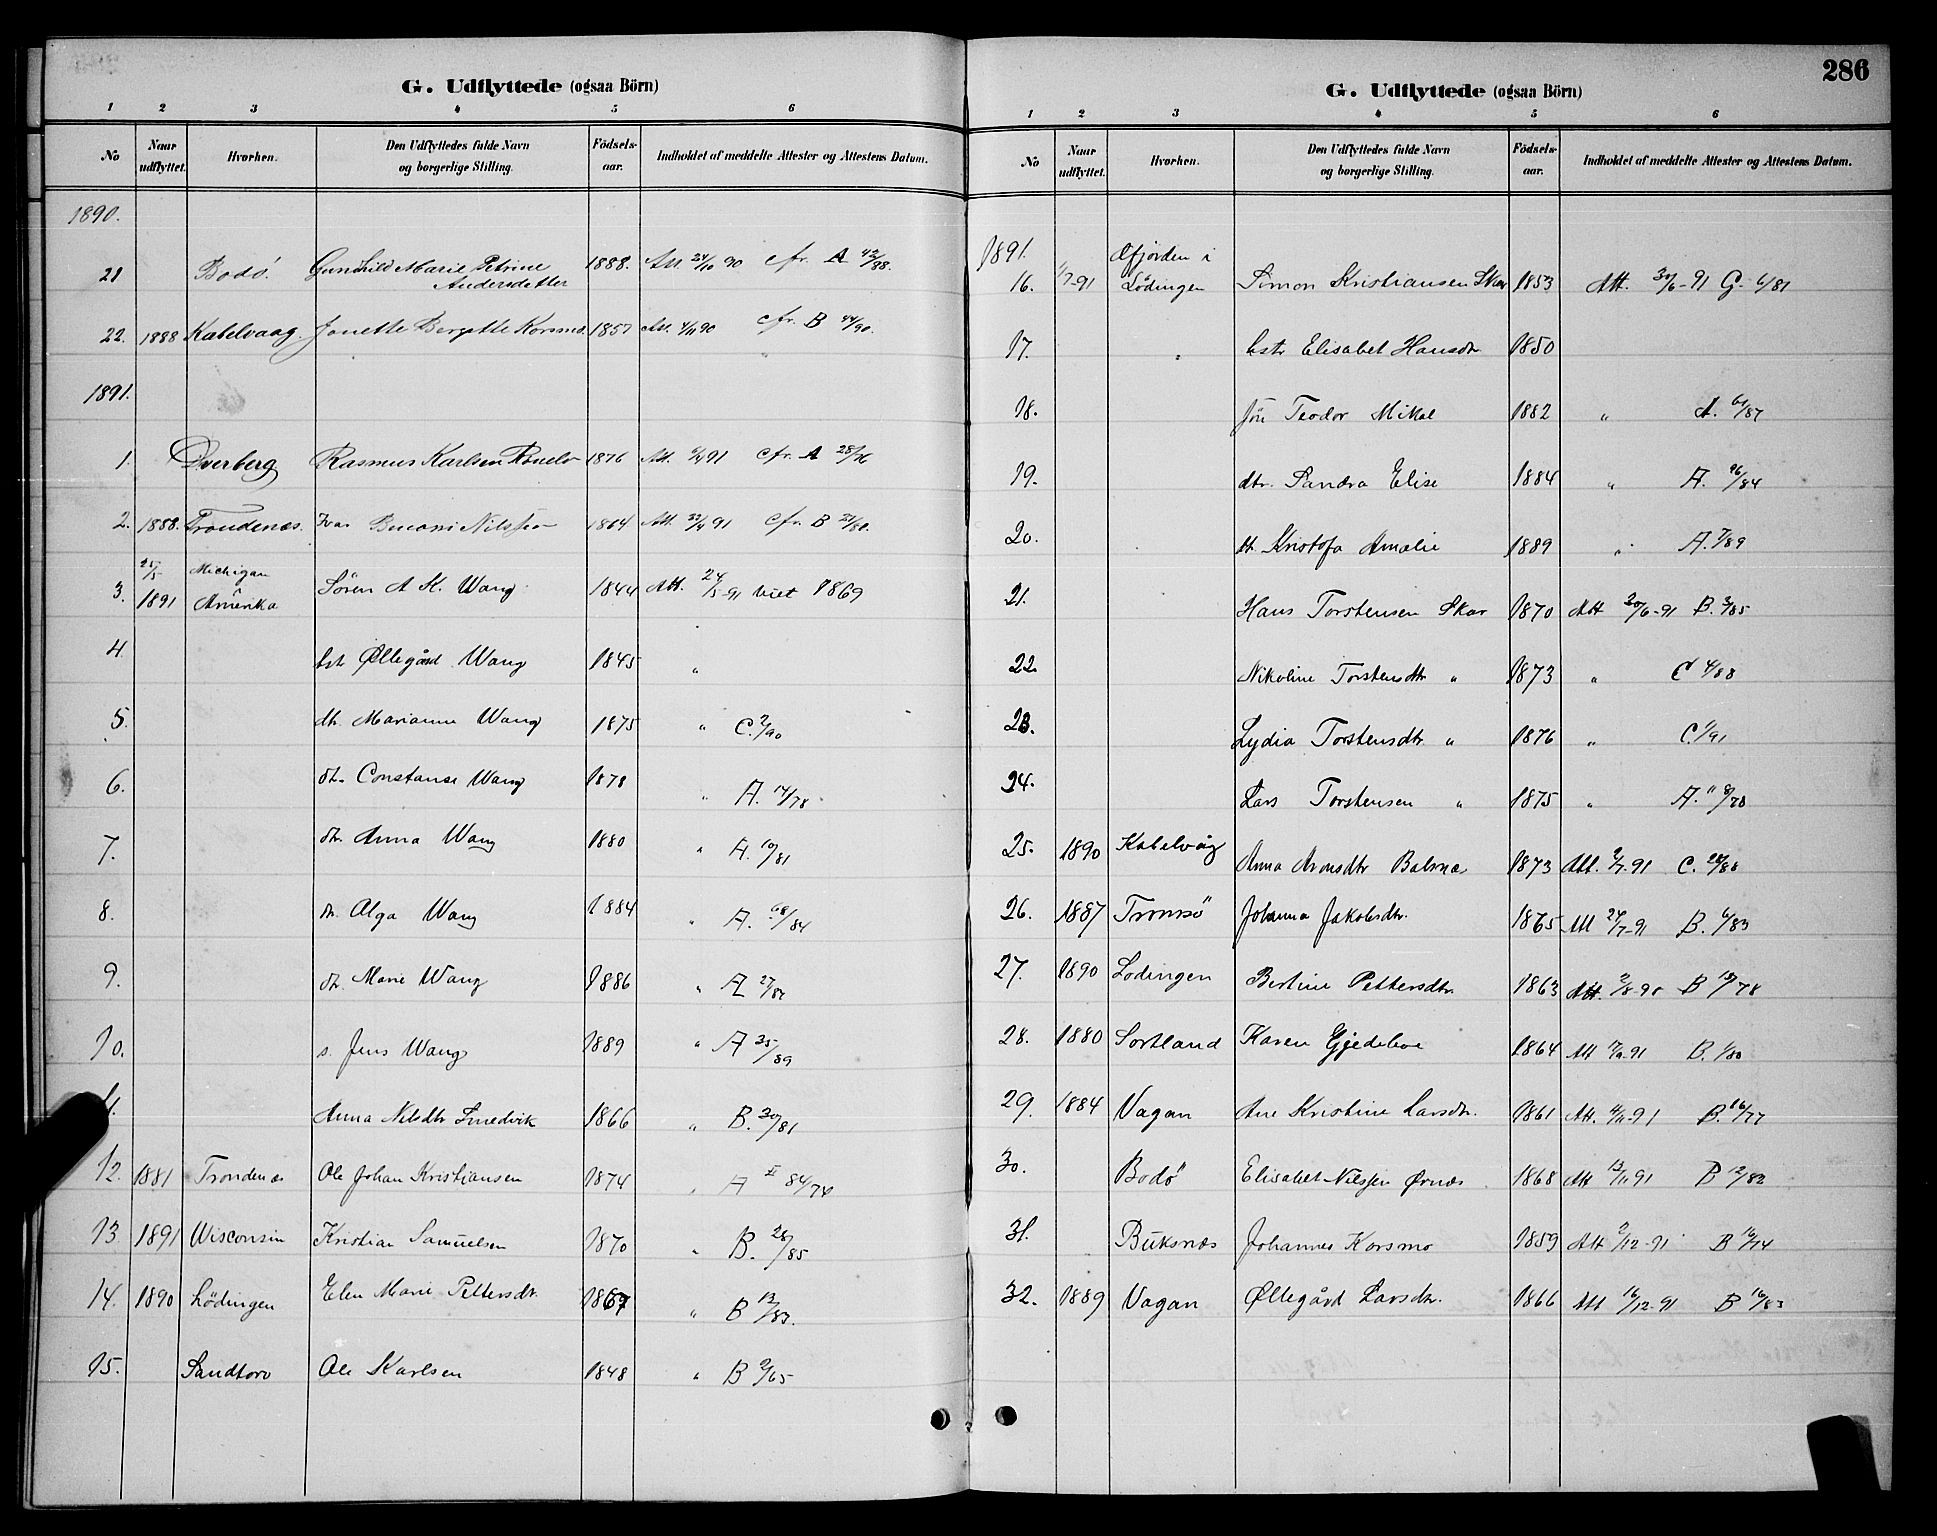 G. Udflyttede (ogsaa Börn)
1 2 3 4 5 6
No Naar udflyttet. Hvorhen. Den Udflyttedes fulde Navn og borgerlige Stilling. Födsels-aar. Indholdet af meddelte Attester og Attestens Datum.
1890.
21 Bodö. Gunhild Marie Petrine Andersdatter 1888. Att. 24/10 90 cfr. A 42/88.
22. 1888 Kabelvaag. Jonette Bergitte Korsmo. 1857 Att. 4/11 90 cfr. B 44/90.
1891.
1. Dverberg Rasmus Karlsen 1876 Att. 91 cfr. A 28/76
2. 1888. Trondenæs. Ivar Nilssen 1864 Att. 91 cfr. B 80.
3. 25/5 1891 Michigan Amerika Sören A K. Wang 1844 Att. 24/5-91 viet 1869
4. hst Øllegård Wang 1845 "
5. dtr. Marianne Wang 1875 " C. 2/90
6. dtr. Constanse Wang 1878 " A. 14/78
7. dtr. Anna Wang 1880 " A. 10/81
8. dtr. Alga Wang 1884 " A. 68/84
9. dtr. Marie Wang 1886 " A 27/87
10. s. Jens Wang 1889 " A 35/89
11. Anna Nilsdtr Smedvik 1866 " B. 30/81
12. 1881 Trondenæs Ole Johan Kristiansen 1874 " A II 84/74
13 1891 Wisconsin Kristian Samuelsen 1870 " B. 28/85
14. 1890 Lödingen Elen Marie Pettersdtr. 1867 " B 13/83.
15. Sandtorv Ole Karlsen 1848 " B 9/65
286
G. Udflyttede (ogsaa Börn)
1 2 3 4 5 6
No Naar udflyttet. Hvorhen. Den Udflyttedes fulde Navn og borgerlige Stilling. Födsels-aar. Indholdet af meddelte Attester og Attestens Datum.
1891.
16. 1/7-91 Øfjorden i Lödingen Simon Kristiansen Skar 1853 Att. 30/6-91 G. 6/81
17. " hstr Elisabet Hansdtr 1850
18. Teodor Mikal 1882 " A. 61/87
19. dtr. Sandra Elise 1884 " A. 96/84
20. dt. Kristofa Amalie 1889 " A. 7/89
21. Hans Torstensen Skar 1870 Att 30/6-91 B. 3/85
22. Nikoline Torstensdtr " 1873 " C 4/88
23. Lydia Torstensdtr " 1876 " C. 1/91
24. Lars Torstensen " 1875 " A. " 8/78
25. 1890 Kabelvåg Anna Aronsdtr Balsnæs 1873 Att. 2/7-91 C. 28/88
26. 1887 Tromsö Johanna Jakobsdtr. 1865 Att 24/7-91 B. 6/83
27. 1890 Lodingen Bertine Pettersdtr. 1863 Att. 2/8-90 B 13/78
28. 1880 Sortland Karen Gjedeleve 1864 Att 7/9-91 B. 1/80
29. 1884 Vagan Ane Kristine Larsdtr. 1861 Att. 4/11-91 B. 16/77
30. Bodö Elisabet Nilssen Ørnæs 1868 Att 13/11 91 B 12/82
31. Buksnæs Johannes Korsmo 1859 Att 2/12-91 B 16/74
32. 1889 Vagan Øllegård Larsdtr. 1866 Att 16/12-91 B 16/83